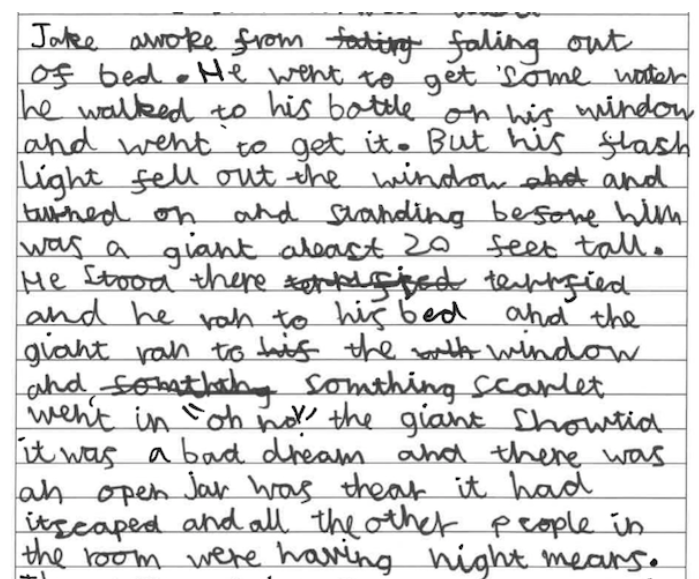 Jake awoke from faling faling out
of bed. He went to get some water
he walked to his bottle on his window
and went to get it. But his flash
light fell out the window and and
turned on and standing before him
was a giant aleast 20 feet tall.
He stood there terrified terrified
and he ran to his bed and the
giant ran to his the window
and somthing somthing scarlet
went in "oh no" the giant showtid
it was a bad dream and there was
an open jar was thear it had
itscaped and all the other people in
the room were having night mears.